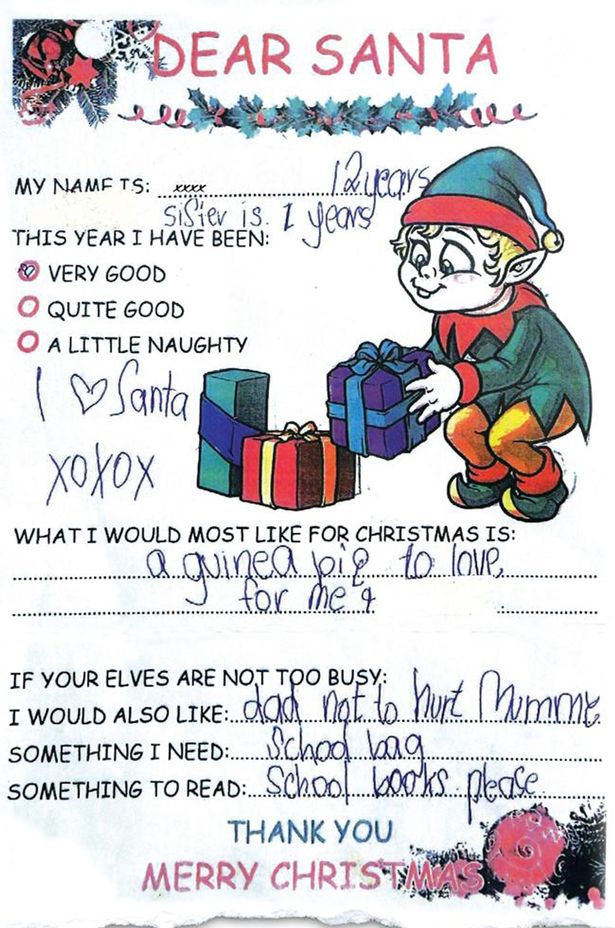 DEAR SANTA
MY NAME IS: xxxx 12 years
sister is 1 years
THIS YEAR I HAVE BEEN:
VERY GOOD
QUITE GOOD
A LITTLE NAUGHTY
I ♡ Santa
XOXOX
WHAT I WOULD MOST LIKE FOR CHRISTMAS IS:
a guinea pig to love
for me &
IF YOUR ELVES ARE NOT TOO BUSY:
I WOULD ALSO LIKE: dad not to hurt Mummy
SOMETHING I NEED: School bag
SOMETHING TO READ: School books please
THANK YOU
MERRY CHRISTMAS